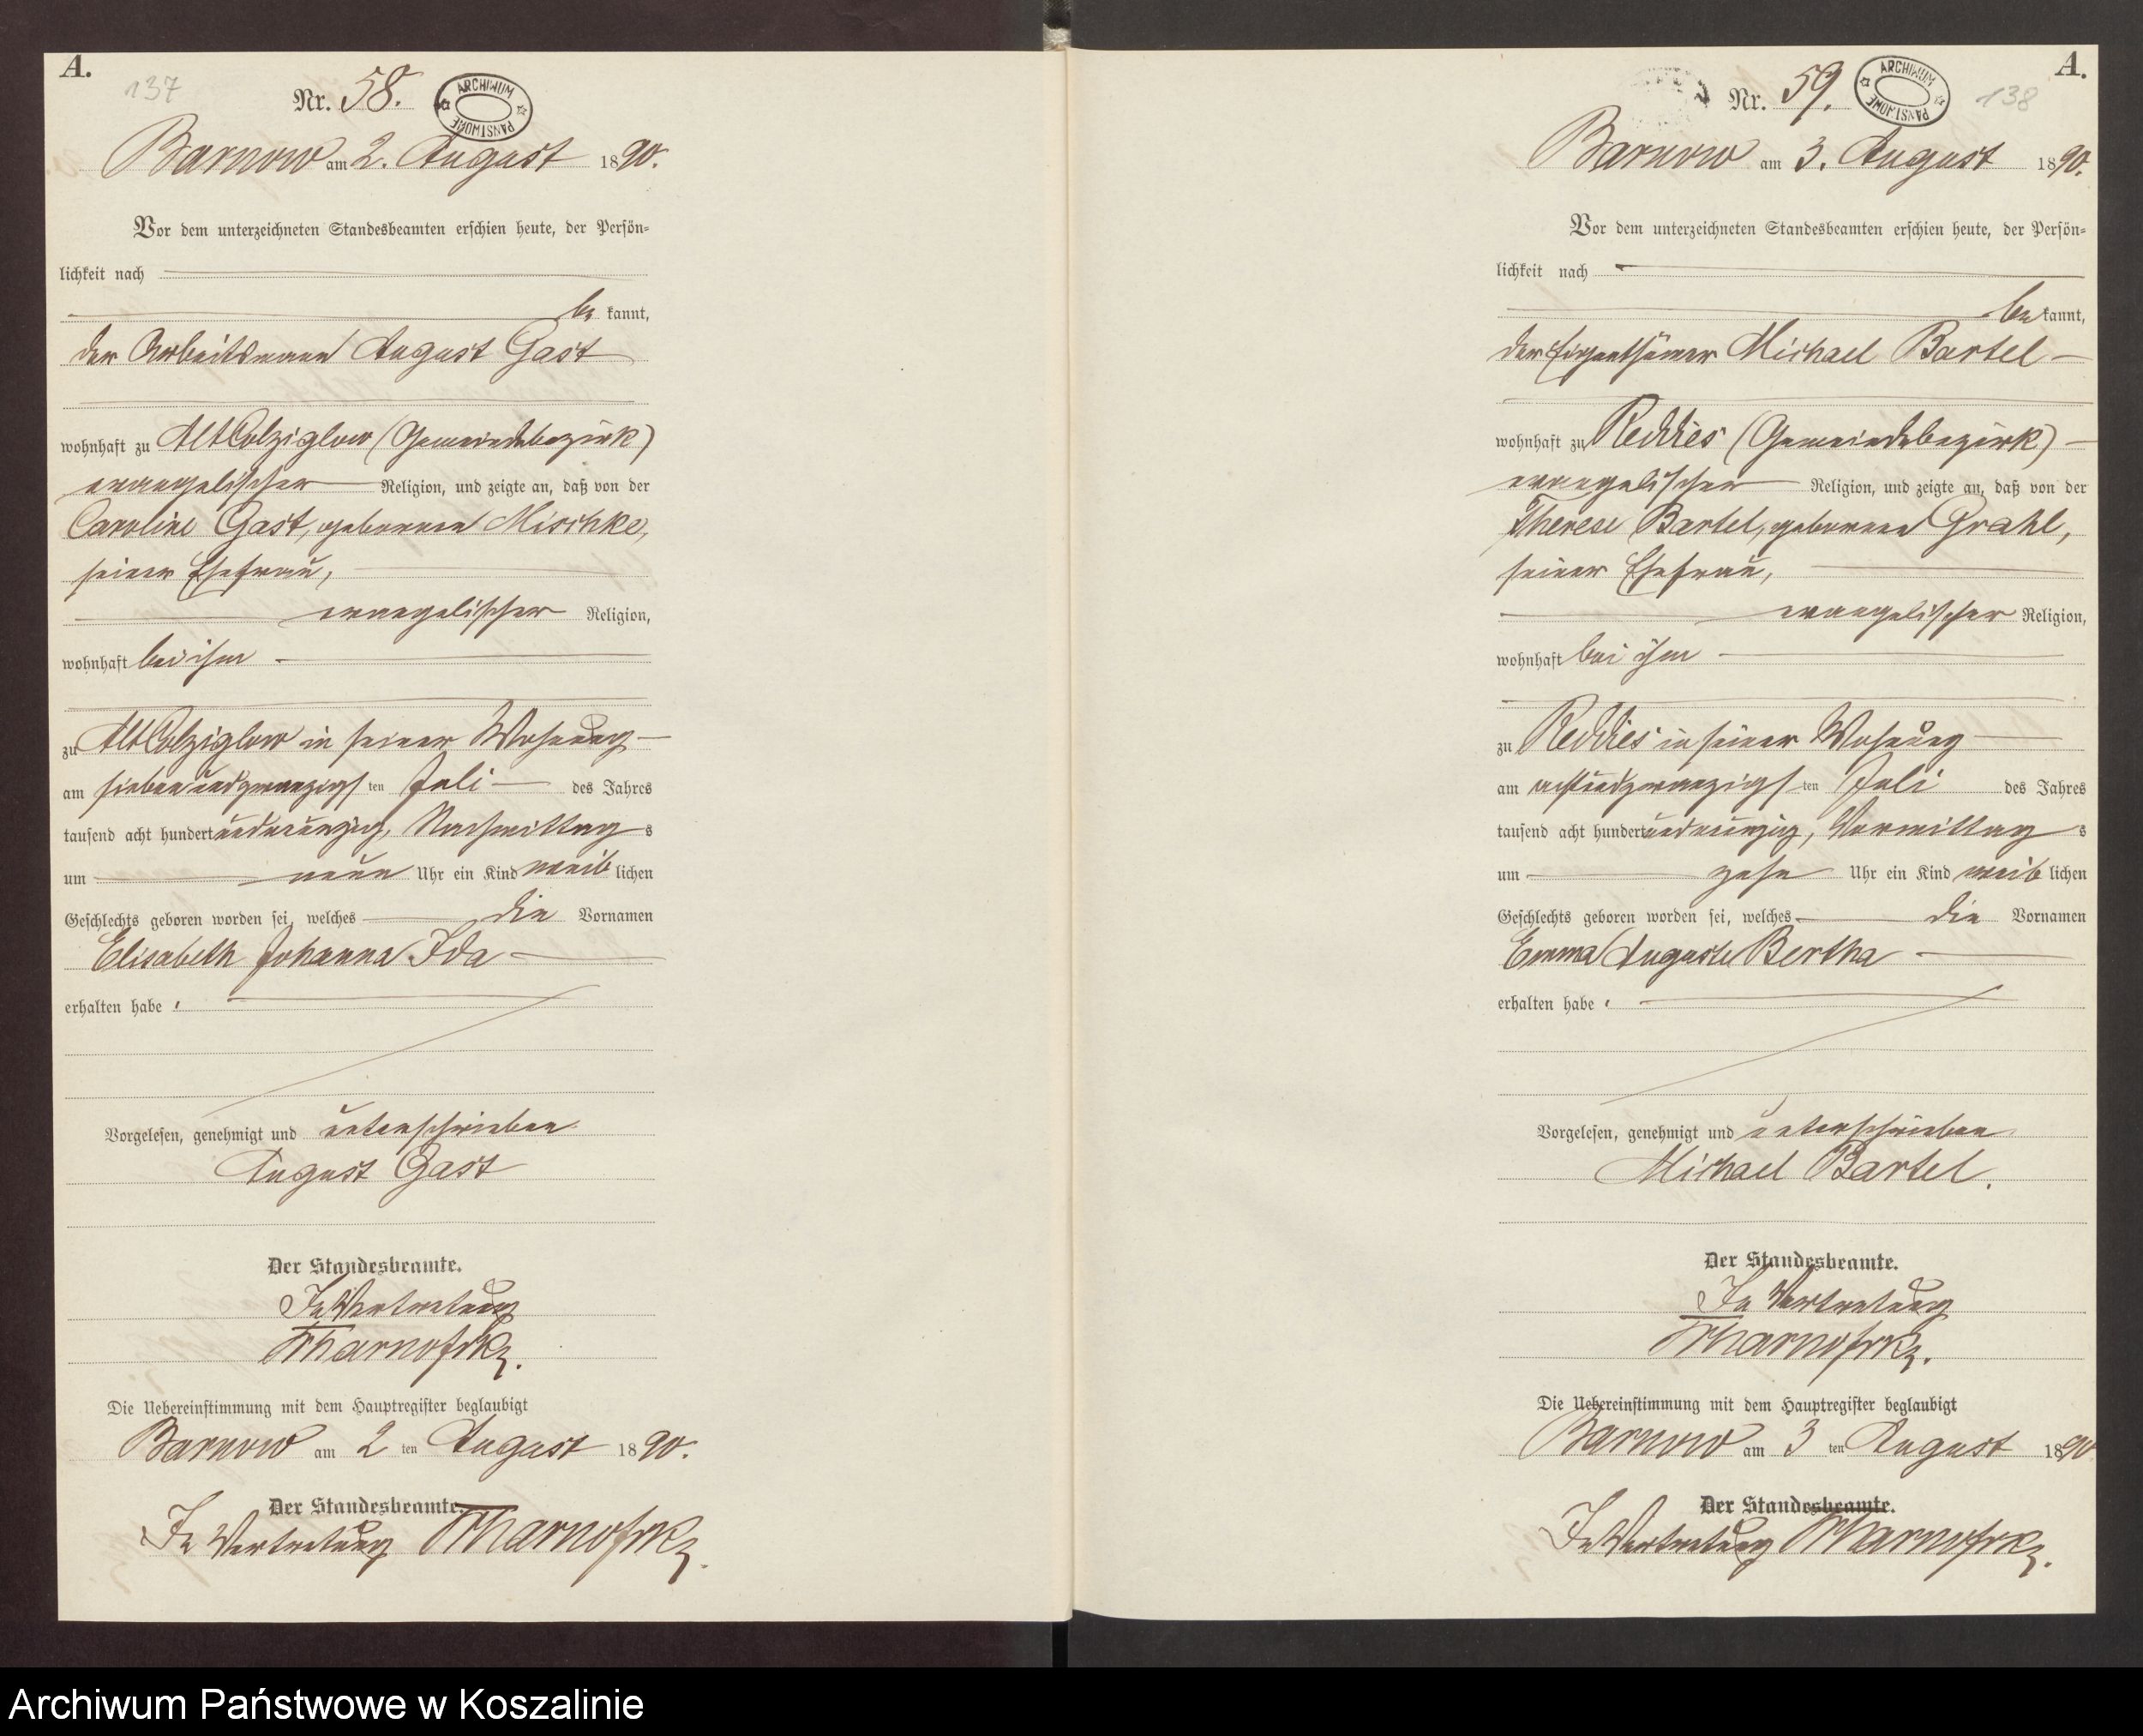 A.
137
Nr. 58.
ARCHIWUM PAŃSTWOWE
Barnow am 2. August 1890.
Vor dem unterzeichneten Standesbeamten erschien heute, der Persön-
lichkeit nach
be kannt,
der Arbeitsmann August Gast
wohnhaft zu Alt Colziglow (Gemeindebezirk)
evangelischer Religion, und zeigte an, daß von der
Caroline Gast, geborenen Mischke,
seiner Ehefrau,
evangelischer Religion,
wohnhaft bei ihm
zu Alt Colziglow in seiner Wohnung
am siebenundzwanzigs ten Juli des Jahres
tausend acht hundert undneunzig, Nachmittag s
um neun Uhr ein Kind weib lichen
Geschlechts geboren worden sei, welches die Vornamen
Elisabeth Johanna Ida
erhalten habe.
Vorgelesen, genehmigt und unterschrieben
August Gast
Der Standesbeamte.
In Vertretung
Die Uebereinstimmung mit dem Hauptregister beglaubigt
Barnow am 2 ten August 1890.
Der Standesbeamte.
In Vertretung
A.
138
Nr. 59.
ARCHIWUM PAŃSTWOWE
Barnow am 3. August 1890.
Vor dem unterzeichneten Standesbeamten erschien heute, der Persön-
lichkeit nach
be kannt,
der Eigenthümer Michael Bartel
wohnhaft zu Reddies (Gemeindebezirk)
evangelischer Religion, und zeigte an, daß von der
Therese Bartel, geborenen Grahl,
seiner Ehefrau,
evangelischer Religion,
wohnhaft bei ihm
zu Reddies in seiner Wohnung
am achtundzwanzigs ten Juli des Jahres
tausend acht hundert undneunzig, Vormittag s
um zehn Uhr ein Kind weib lichen
Geschlechts geboren worden sei, welches die Vornamen
Emma Auguste Bertha
erhalten habe.
Vorgelesen, genehmigt und unterschrieben
Michael Bartel.
Der Standesbeamte.
In Vertretung
Die Uebereinstimmung mit dem Hauptregister beglaubigt
Barnow am 3 ten August 1890
Der Standesbeamte.
In Vertretung
Archiwum Państwowe w Koszalinie